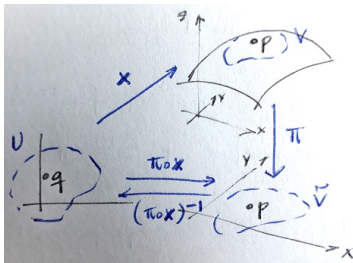 z
•p V
X
y
x
π
U
•q
π∘X
y
(π∘X)⁻¹
•p Ṽ
x